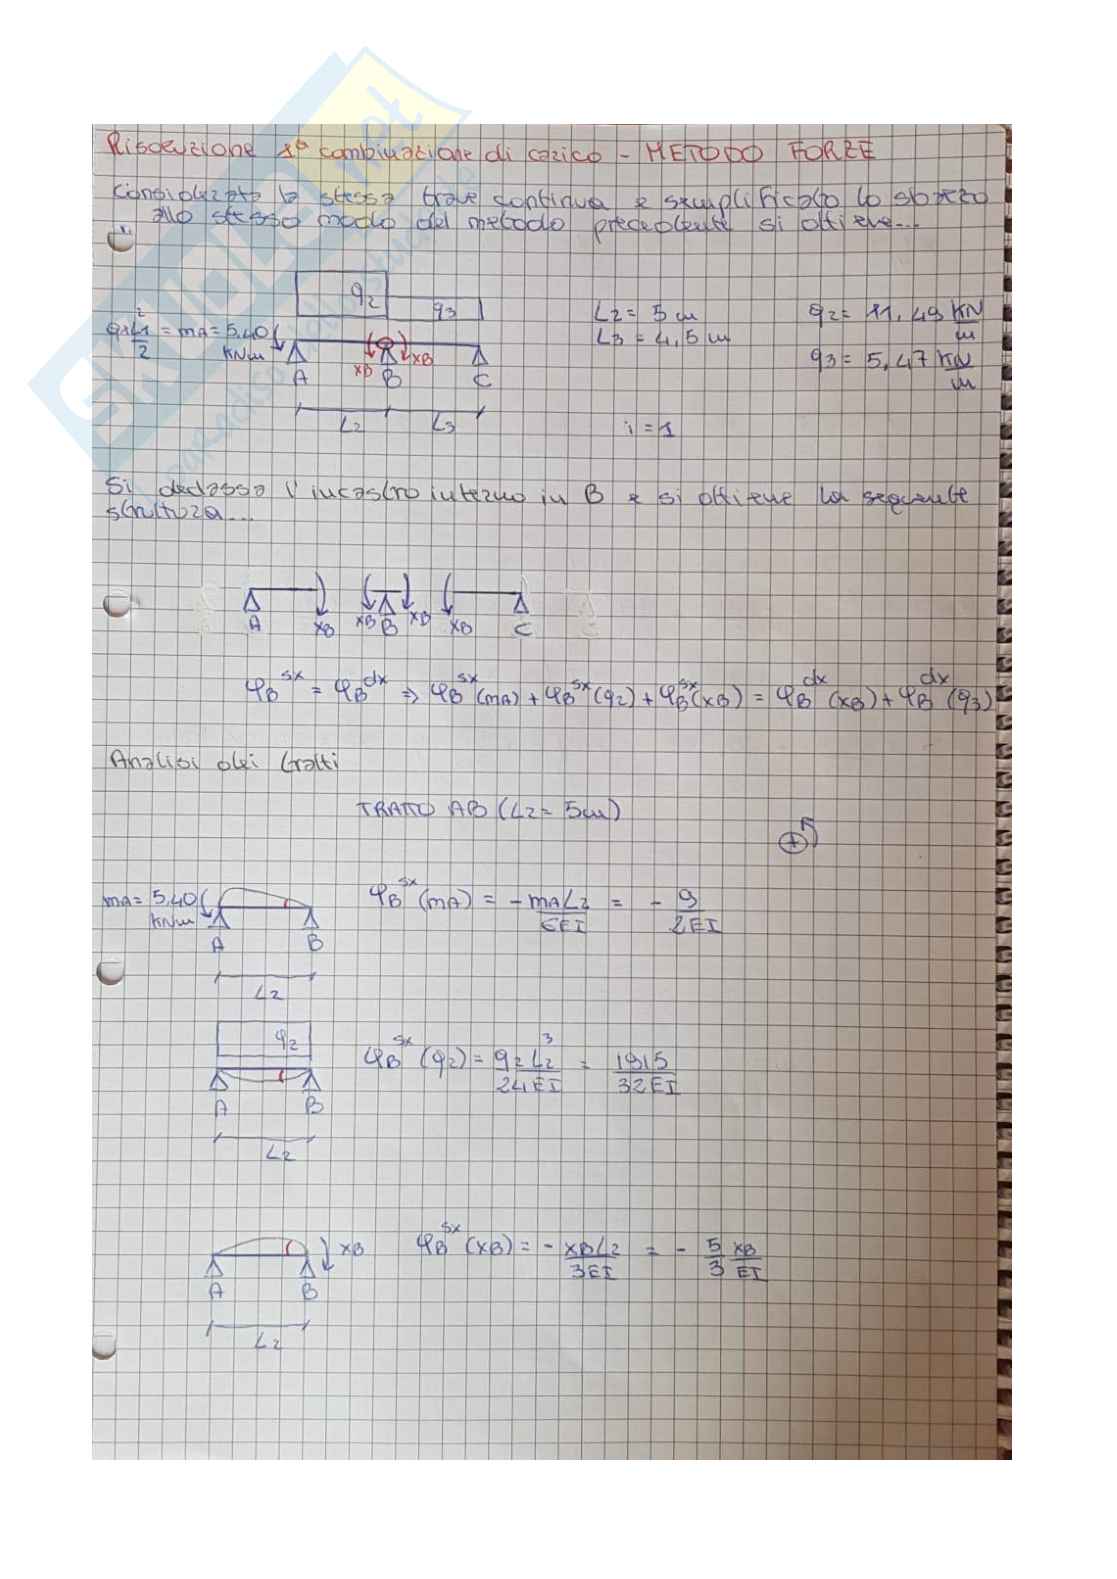 Risoluzione 1ª combinazione di carico - METODO FORZE
Considerata la stessa trave continua e semplificato lo sbalzo
allo stesso modo del metodo precedente si ottiene...
q2
q3
q1L1²/2 = mA = 5,40 KNm
xB xB
A B C
L2 L3
L2 = 5 m
L3 = 4,5 m
q2 = 11,49 KN/m
q3 = 5,47 KN/m
i = 1
Si declassa l'incastro interno in B e si ottiene la seguente
struttura...
A xB xB B xB xB C
φB^sx = φB^dx ⇒ φB^sx (mA) + φB^sx (q2) + φB^sx (xB) = φB^dx (xB) + φB^dx (q3)
Analisi dei tratti
TRATTO AB (L2 = 5m)
+
mA = 5,40 KNm
A B
L2
φB^sx (mA) = - mAL2/6EI = - 9/2EI
q2
A B
L2
φB^sx (q2) = q2L2³/24EI = 1915/32EI
xB
A B
L2
φB^sx (xB) = - xBL2/3EI = - 5/3 xB/EI